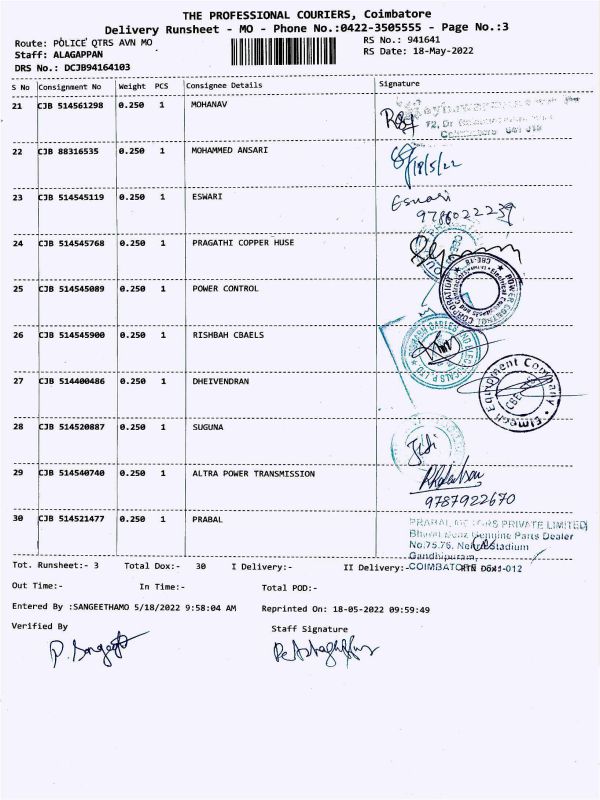 THE PROFESSIONAL COURIERS, Coimbatore
Delivery Runsheet - MO - Phone No.:0422-3505555 - Page No.:3
Route: POLICE QTRS AVN MO
RS No.: 941641
Staff: ALAGAPPAN
RS Date: 18-May-2022
DRS No.: DCJB94164103
S No Consignment No Weight PCS Consignee Details Signature
21 CJB 514561298 0.250 1 MOHANAV
22 CJB 88316535 0.250 1 MOHAMMED ANSARI
18/5/22
23 CJB 514545119 0.250 1 ESWARI
Eswari
9786022239
24 CJB 514545768 0.250 1 PRAGATHI COPPER HUSE
25 CJB 514545089 0.250 1 POWER CONTROL
POWER CONTROL CORPORATION
CBE-18
26 CJB 514545900 0.250 1 RISHBAH CBAELS
27 CJB 514400486 0.250 1 DHEIVENDRAN
Elmech Equipment Company
28 CJB 514520887 0.250 1 SUGUNA
29 CJB 514540740 0.250 1 ALTRA POWER TRANSMISSION
9787922670
30 CJB 514521477 0.250 1 PRABAL
PRABAL MOTORS PRIVATE LIMITED
Bharat Benz Genuine Parts Dealer
No:75,76, Nehru Stadium
Gandhipuram,
COIMBATORE 641-012
Tot. Runsheet:- 3 Total Dox:- 30 I Delivery:- II Delivery:-
Out Time:- In Time:- Total POD:-
Entered By :SANGEETHAMO 5/18/2022 9:58:04 AM Reprinted On: 18-05-2022 09:59:49
Verified By Staff Signature